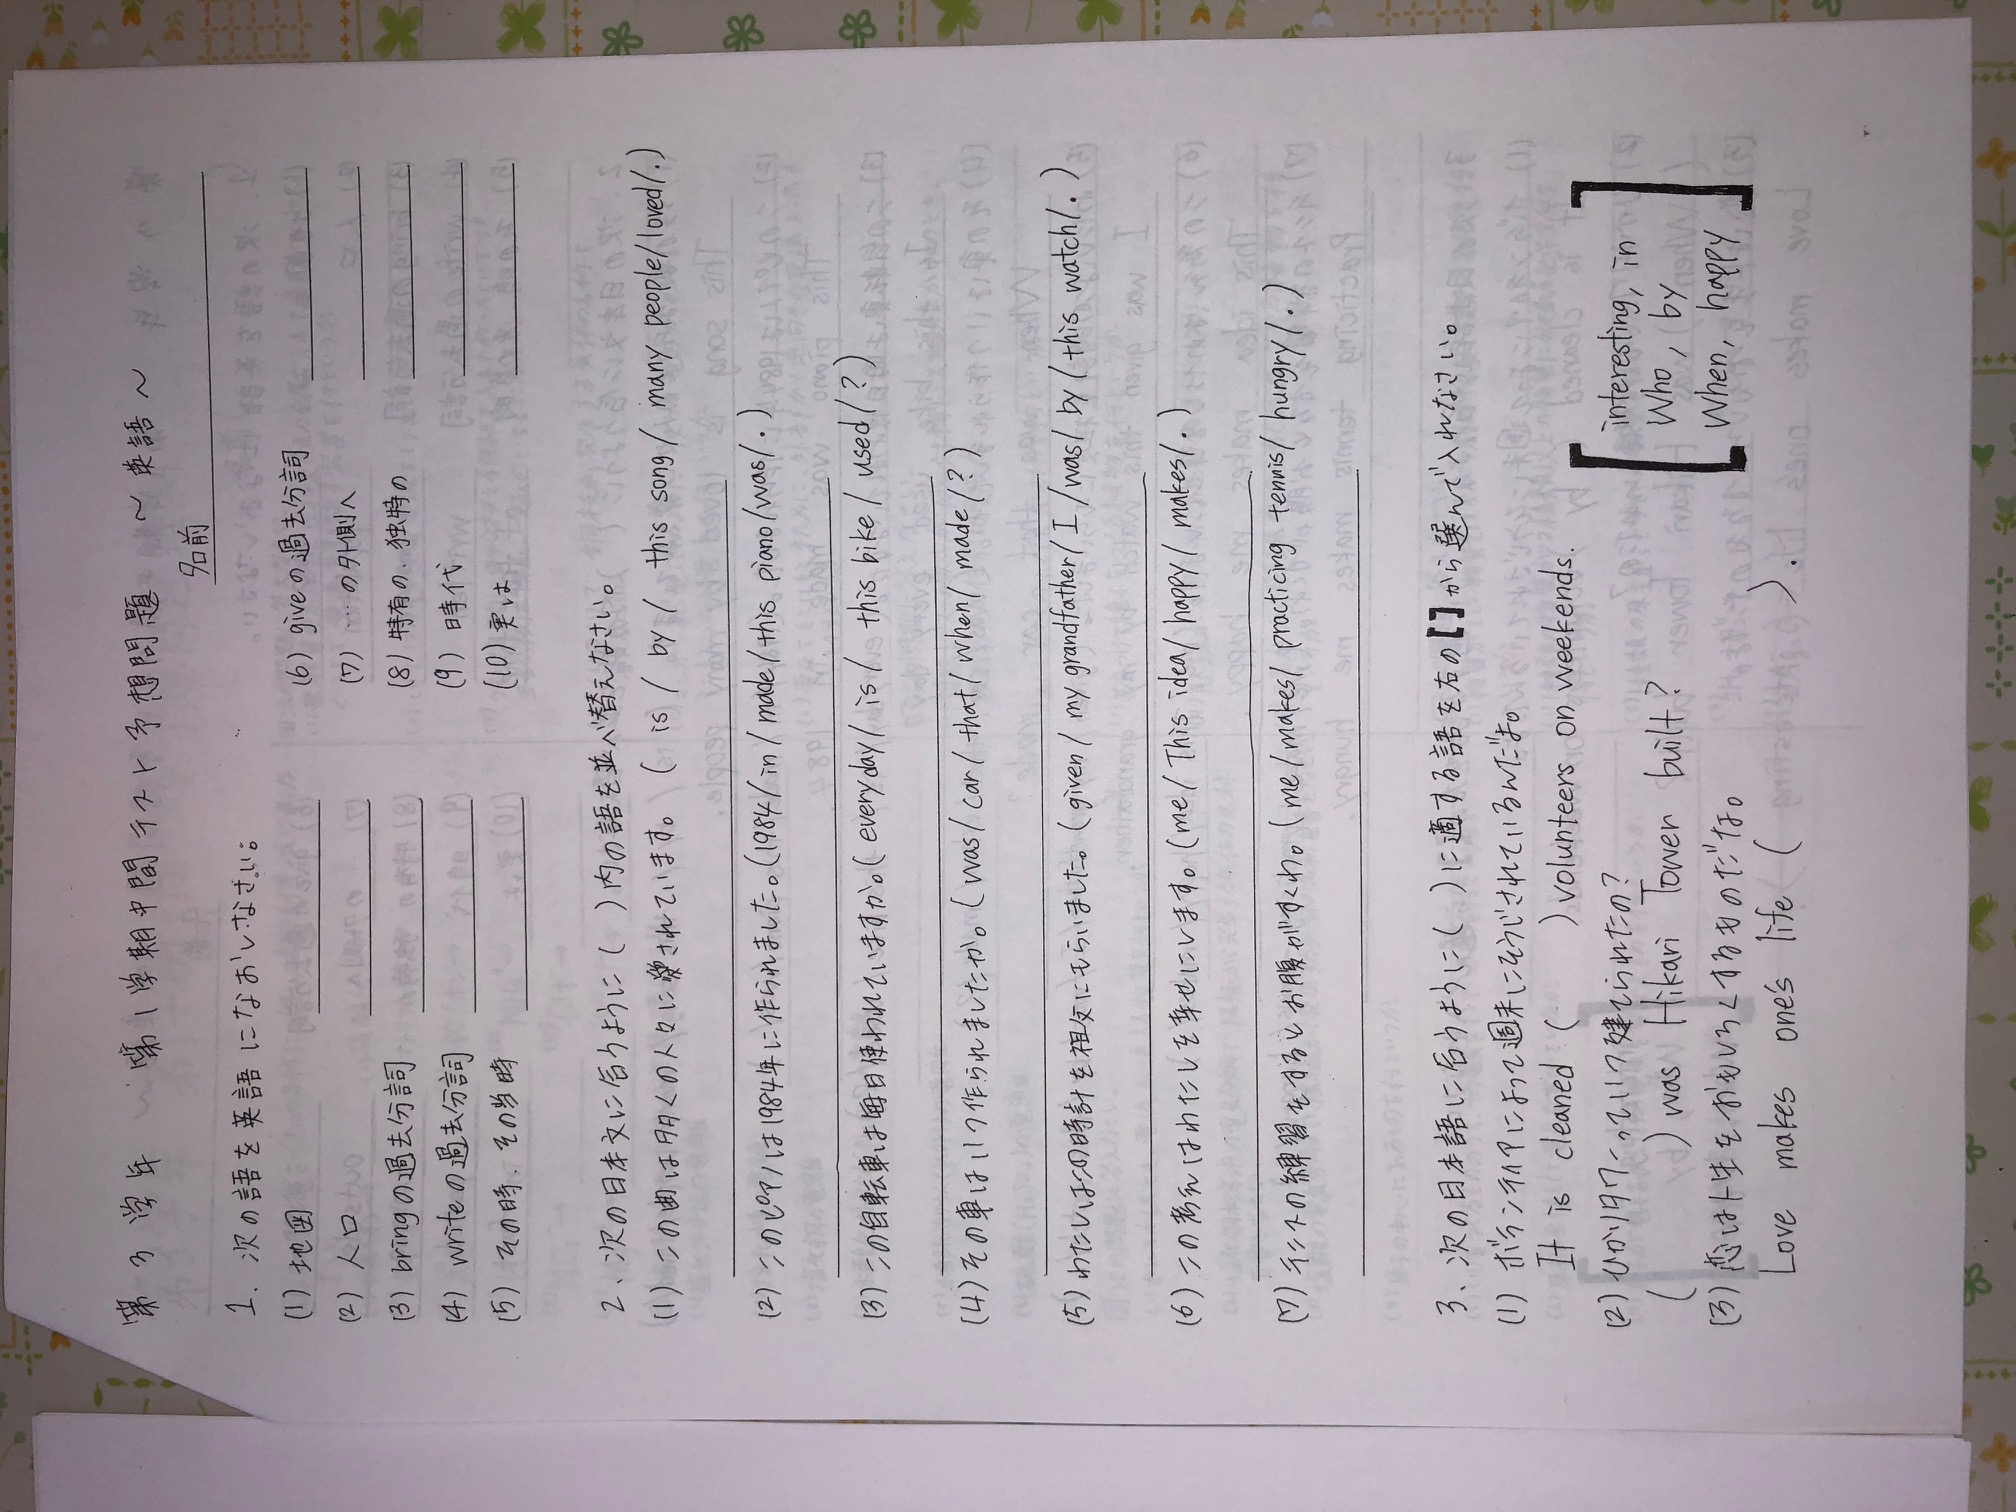 第3学年 第1学期中間テスト予想問題 ～英語～
名前
1、次の語を英語になおしなさい。
(1) 地図
(2) 人口
(3) bringの過去分詞
(4) writeの過去分詞
(5) その時、その当時
(6) giveの過去分詞
(7) …の外側へ
(8) 特有の、独特の
(9) 時代
(10) 実は
2、次の日本文に合うように( )内の語を並べ替えなさい。
(1) この曲は多くの人々に愛されています。( is / by / this song / many people / loved / . )
(2) このピアノは1984年に作られました。(1984 / in / made / this piano / was / . )
(3) この自転車は毎日使われていますか。( everyday / is / this bike / used / ? )
(4) その車はいつ作られましたか。( was / car / that / when / made / ? )
(5) わたしはこの時計を祖父にもらいました。( given / my grandfather / I / was / by / this watch / . )
(6) この考えはわたしを幸せにします。( me / This idea / happy / makes / . )
(7) テニスの練習をするとお腹がすくわ。( me / makes / practicing tennis / hungry / . )
3、次の日本語に合うように( )に適する語を右の[ ]から選んで入れなさい。
(1) ボランティアによって週末にそうじされているんだよ。
It is cleaned ( ) volunteers on weekends.
(2) ひかりタワーっていつ建てられたの?
( ) was Hikari Tower built?
(3) 恋は人生をおもしろくするものだな。
Love makes one's life ( ).
[ interesting, in
Who, by
When, happy ]